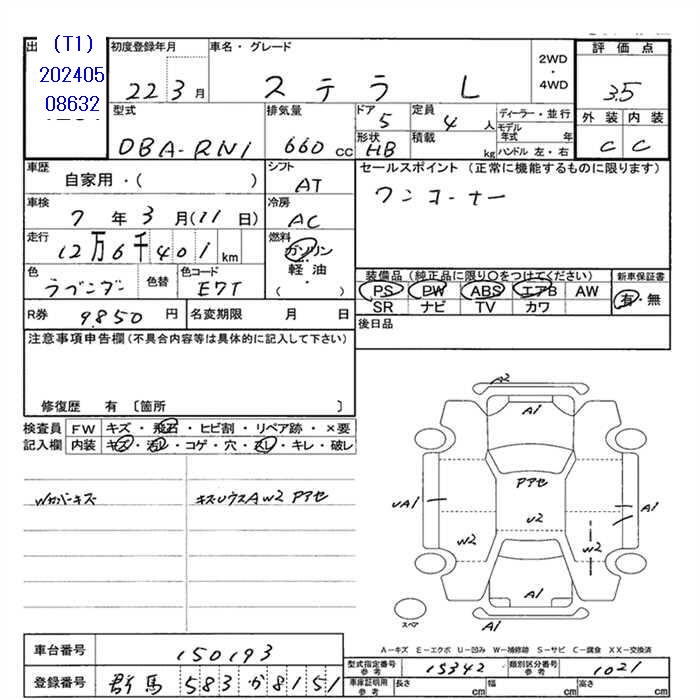 出
(T1)
202405
08632
初度登録年月
22 3月
車名・グレード
ステラ L
2WD
・
4WD
評価点
3.5
外装 内装
C C
型式
DBA-RN1
排気量
660 cc
ドア
5
形状
HB
定員
4 人
積載
kg
ディーラー・並行
モデル年式 年
ハンドル 左・右
車歴
自家用・( )
シフト
AT
セールスポイント (正常に機能するものに限ります)
ワンオーナー
車検
7 年 3 月(11日)
冷房
AC
走行
12万6千401 km
燃料
ガソリン
・
軽油
・
( )
色
色替
色コード
E7T
装備品(純正品に限り○をつけてください)
PS PW ABS エアB AW
SR ナビ TV カワ
新車保証書
有・無
R券 9850 円
名変期限 月 日
後日品
注意事項申告欄(不具合内容等は具体的に記入して下さい)
修復歴 有 〔箇所 〕
検査員 FW キズ・飛石・ヒビ割・リペア跡・×要
記入欄 内装 キズ・汚レ・コゲ・穴・スレ・キレ・破レ
Wカバーキズ
キズUウスAW2 Pアセ
A2
A1
Pアセ
UA1
A1
U2
W2
W2
A1
A1
スペア
A-キズ E-エクボ U-凹み W-補修跡 S-サビ C-腐食 XX-交換済
車台番号 150193
型式指定番号 参考 15342
類別区分番号 参考 1021
登録番号 群馬 583 か 8151
車庫証明用 参考 長さ cm 幅 cm 高さ cm